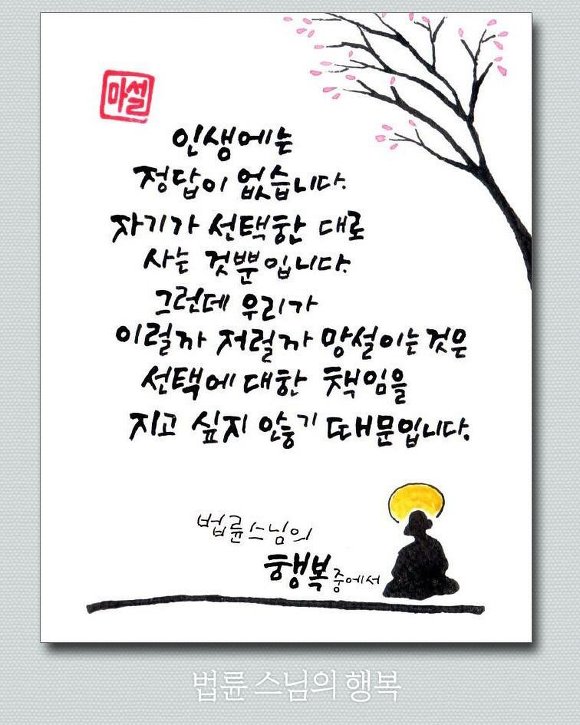 마설
인생에는
정답이 없습니다.
자기가 선택한 대로
사는 것뿐입니다.
그런데 우리가
이럴까 저럴까 망설이는 것은
선택에 대한 책임을
지고 싶지 않기 때문입니다.
법륜스님의
행복 중에서
법륜 스님의 행복